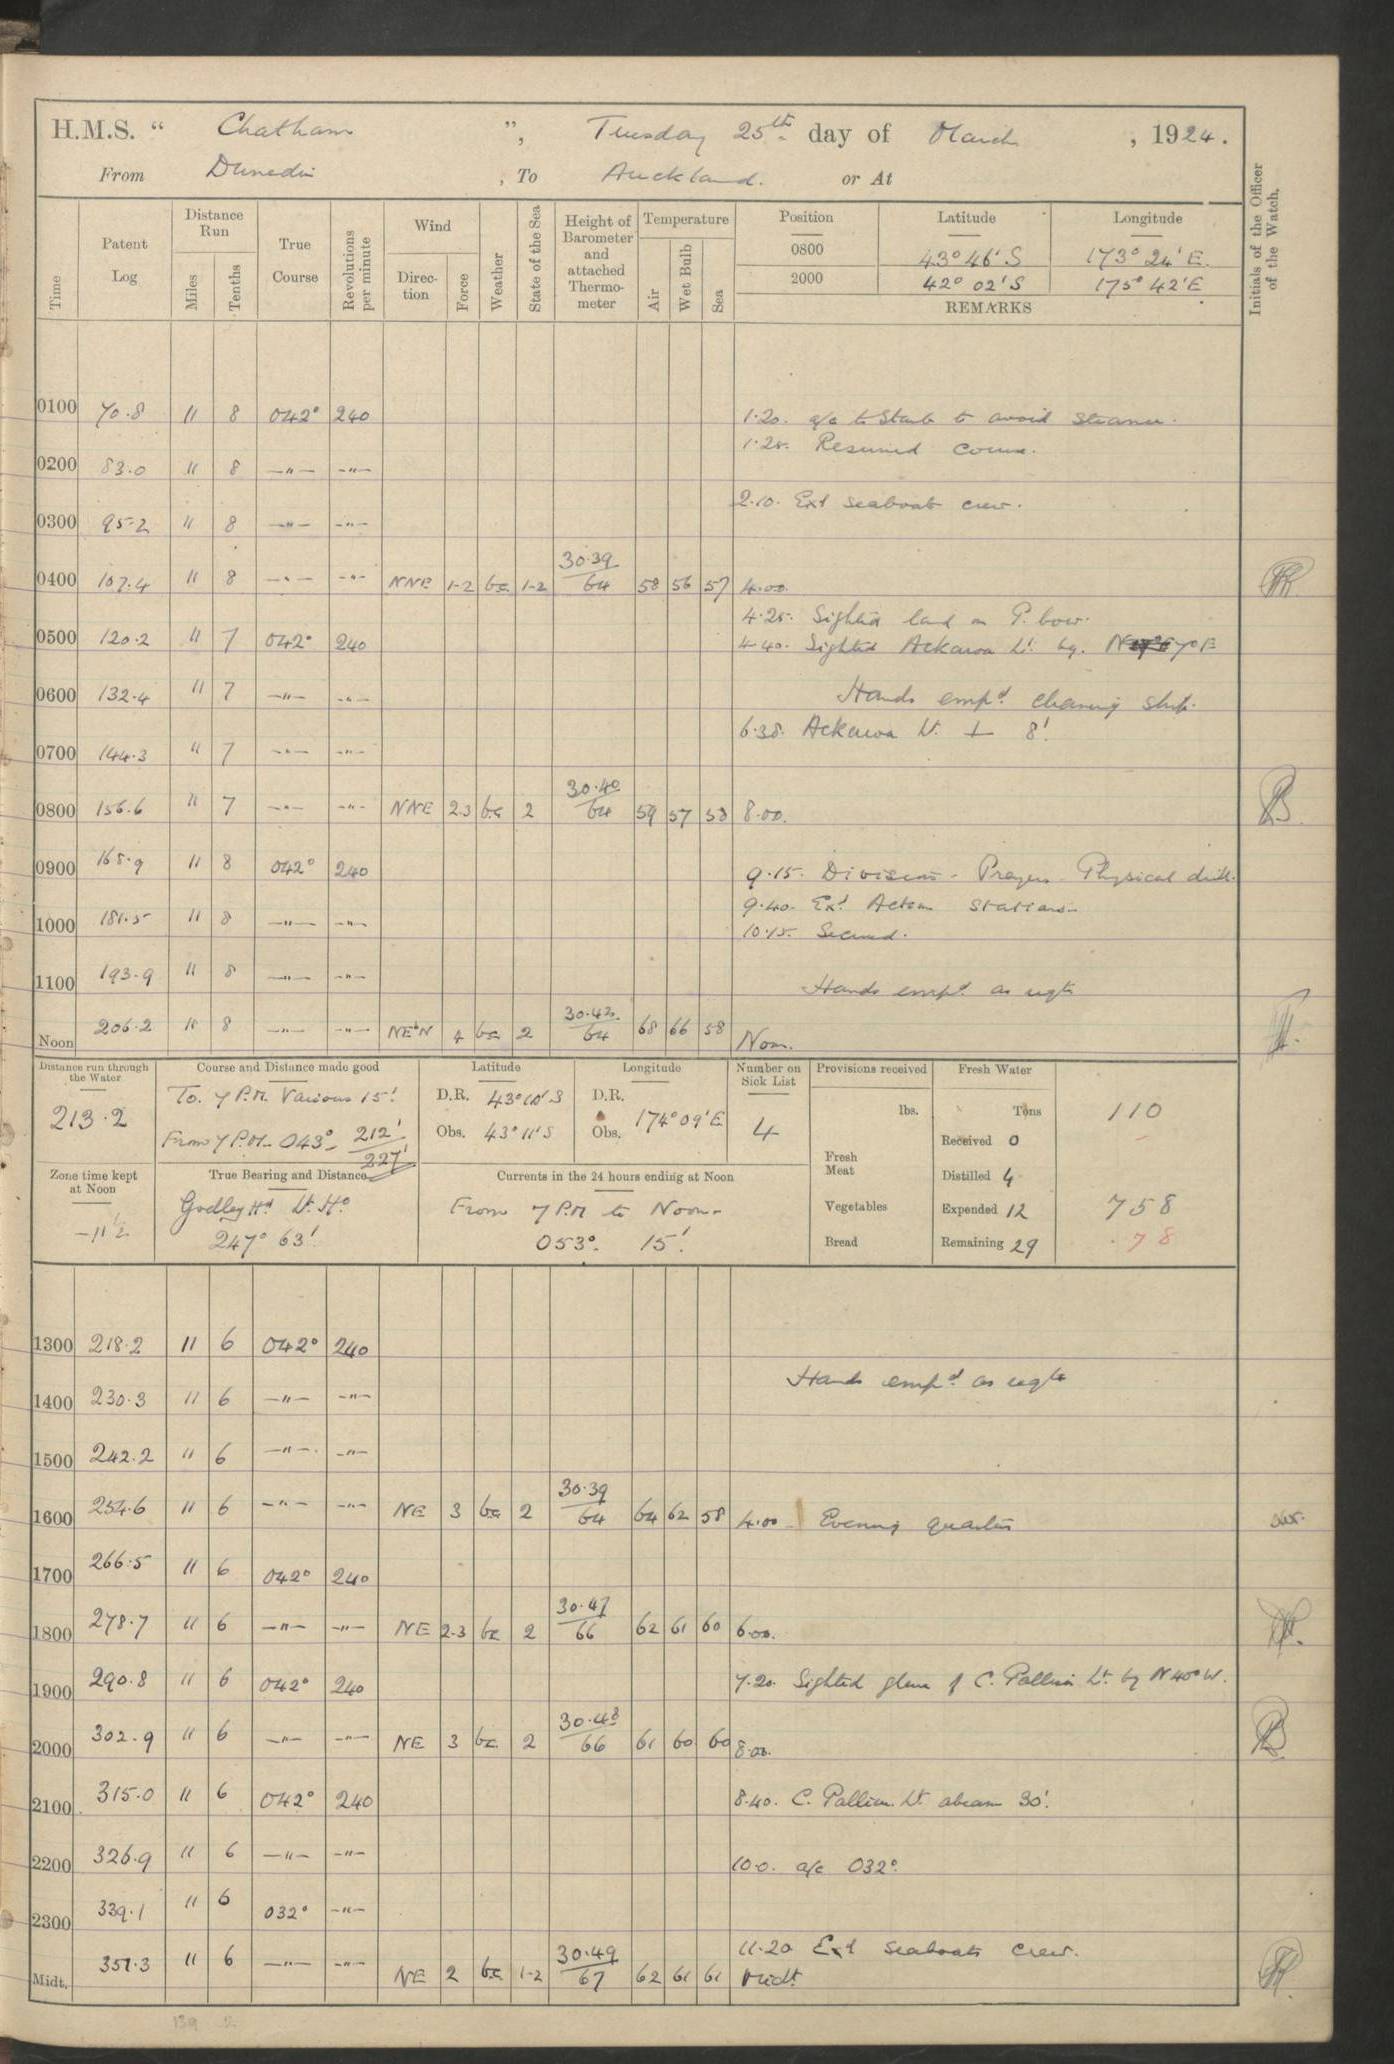 H.M.S. “ Chatham ”, Tuesday 25th day of March , 1924.
From Dunedin , To Auckland. or At
Time
Patent Log
Distance Run
Miles
Tenths
True Course
Revolutions per minute
Wind
Direction
Force
Weather
State of the Sea
Height of Barometer and attached Thermometer
Temperature
Air
Wet Bulb
Sea
Position Latitude Longitude
0800 43° 46' S 173° 24' E.
2000 42° 02' S 175° 42' E
REMARKS
Initials of the Officer of the Watch.
0100 70.8 11 8 042° 240 1.20. a/c to Starb to avoid steamer.
1.25. Resumed course.
0200 83.0 11 8 —"— —"—
2.10. Exd seaboats crew.
0300 95.2 11 8 —"— —"—
0400 107.4 11 8 —"— —"— NNE 1-2 bc 1-2 30.39/64 58 56 57 4.00.
4.25. Sighted land on P. bow.
0500 120.2 11 7 042° 240 4.40. Sighted Ackaroa Lt. bg. N 7° E
0600 132.4 11 7 —"— —"— Hands empd cleaning ship.
6.38. Ackaroa Lt. ⊥ 8'.
0700 144.3 11 7 —"— —"—
0800 156.6 11 7 —"— —"— NNE 2.3 bc 2 30.40/64 59 57 58 8.00.
0900 168.9 11 8 042° 240 9.15. Divisions - Prayers - Physical drill.
9.40. Exd Action Stations -
1000 181.5 11 8 —"— —"— 10.15. Secured.
1100 193.9 11 8 —"— —"— Hands empd. as reqte
Noon 206.2 11 8 —"— —"— NE'N 4 bc 2 30.42/64 68 66 58 Noon.
Distance run through the Water
213.2
Course and Distance made good
To. 7 P.M. Various 15'
From 7 P.M. 043° - 212'
227'
Latitude
D.R. 43° 10' S
Obs. 43° 11' S
Longitude
D.R.
Obs. 174° 09' E
Number on Sick List
4
Provisions received
lbs.
Fresh Meat
Vegetables
Bread
Fresh Water
Tons
Received 0
Distilled 4
Expended 12
Remaining 29
110
758
78
Zone time kept at Noon
-11½
True Bearing and Distance
Godley Hd. Lt. Ho.
247° 63'
Currents in the 24 hours ending at Noon
From 7 P.M to Noon -
053°. 15'.
1300 218.2 11 6 042° 240
Hands empd. as reqte
1400 230.3 11 6 —"— —"—
1500 242.2 11 6 —"— —"—
1600 254.6 11 6 —"— —"— NE 3 bc 2 30.39/64 64 62 58 4.00 - Evening quarters
1700 266.5 11 6 042° 240
1800 278.7 11 6 —"— —"— NE 2-3 bc 2 30.47/66 62 61 60 6.00.
1900 290.8 11 6 042° 240 7.20. Sighted glare of C. Palliser Lt. bg N 40° W.
2000 302.9 11 6 —"— —"— NE 3 bc 2 30.48/66 61 60 60 8.00.
2100 315.0 11 6 042° 240 8.40. C. Palliser Lt. abeam 30'.
2200 326.9 11 6 —"— —"— 10.0. a/c 032°.
2300 339.1 11 6 032° —"—
11.20 Exd seaboats crew.
Midt. 351.3 11 6 —"— —"— NE 2 bc 1-2 30.49/67 62 61 61 Midt